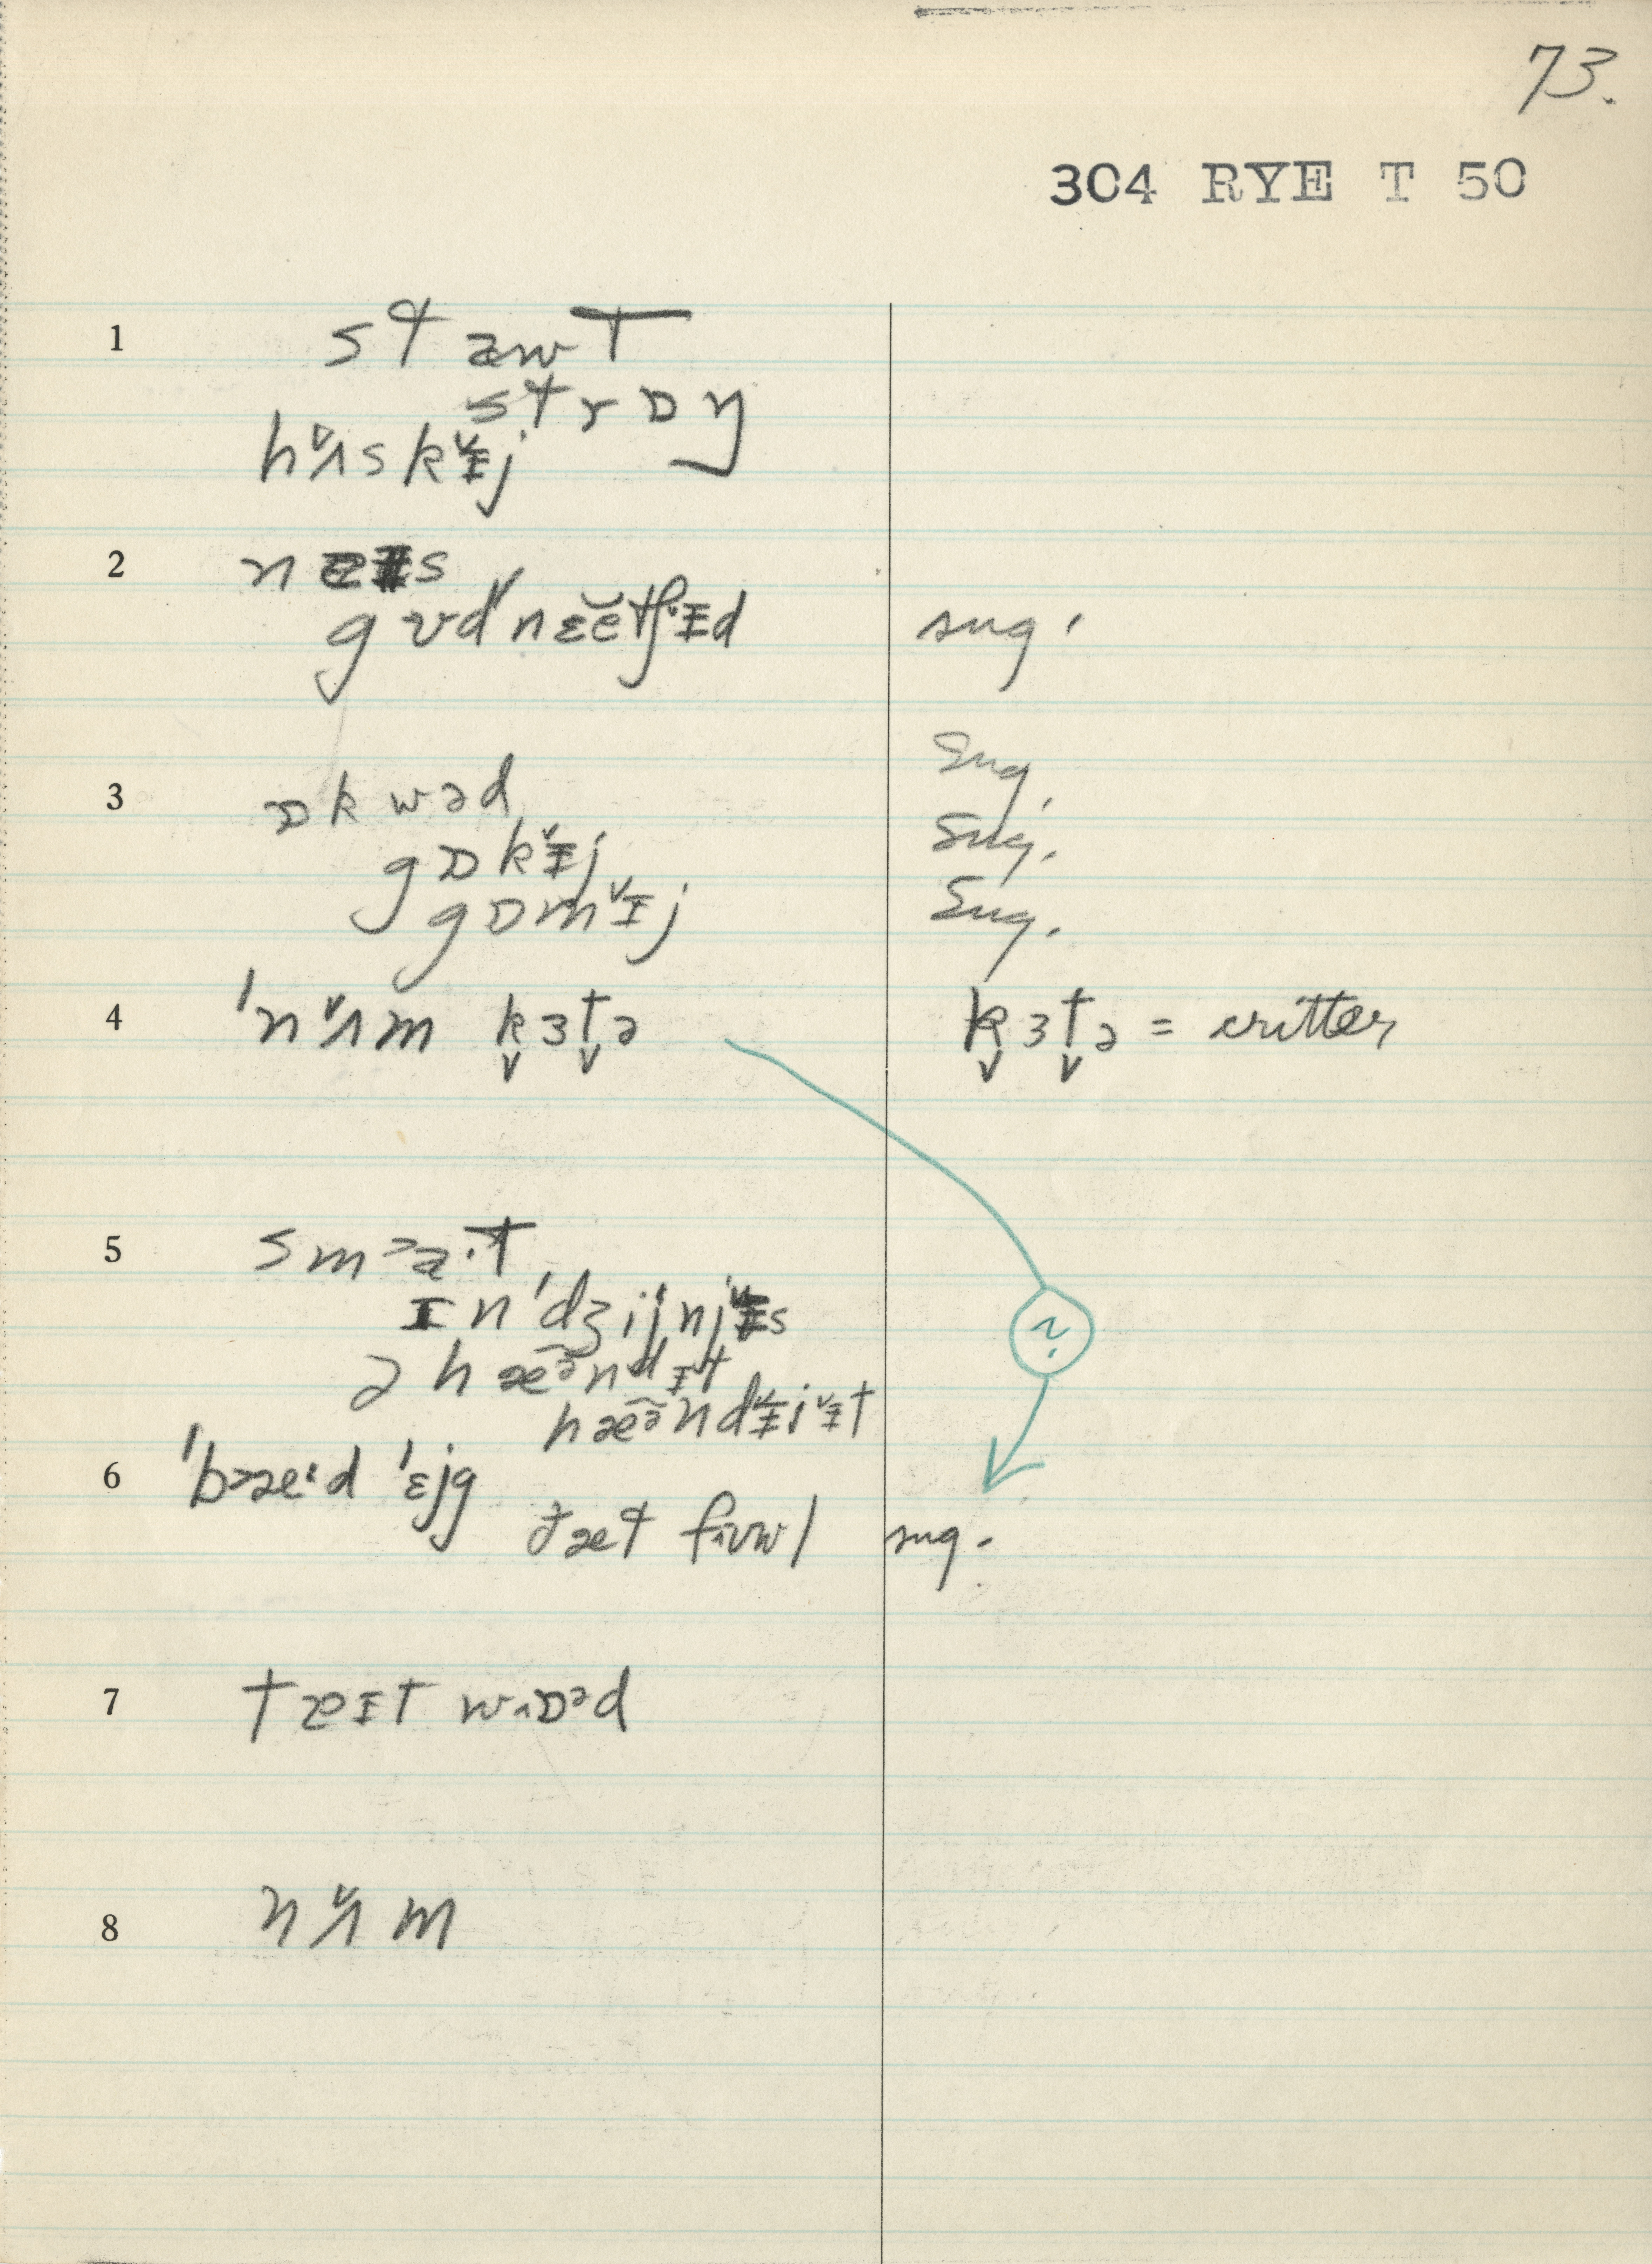 73.
304 RYE T 50
1 stawt
strɒŋ
hʌ̌skɪ̌j
2
gʊd neĕtʃɪ̌d sug.
3 ɒkwəd Sug.
gɒkɪ̌j Sug.
gɒmɪ̌j Sug.
4 ˈnʌ̌m k̬ɜt̬ə k̬ɜt̬ə = critter
5 sma·t
ɪnˈdʒijnjɪ̌s
ə hæə̆ndɪt
?
hæə̆ndɪ̌iɪ̌t
6 ˈbæ·d ˈɛjg
ðæt fʌʊwl sug.
7 tæɪt wʌɒəd
8 nʌ̌m